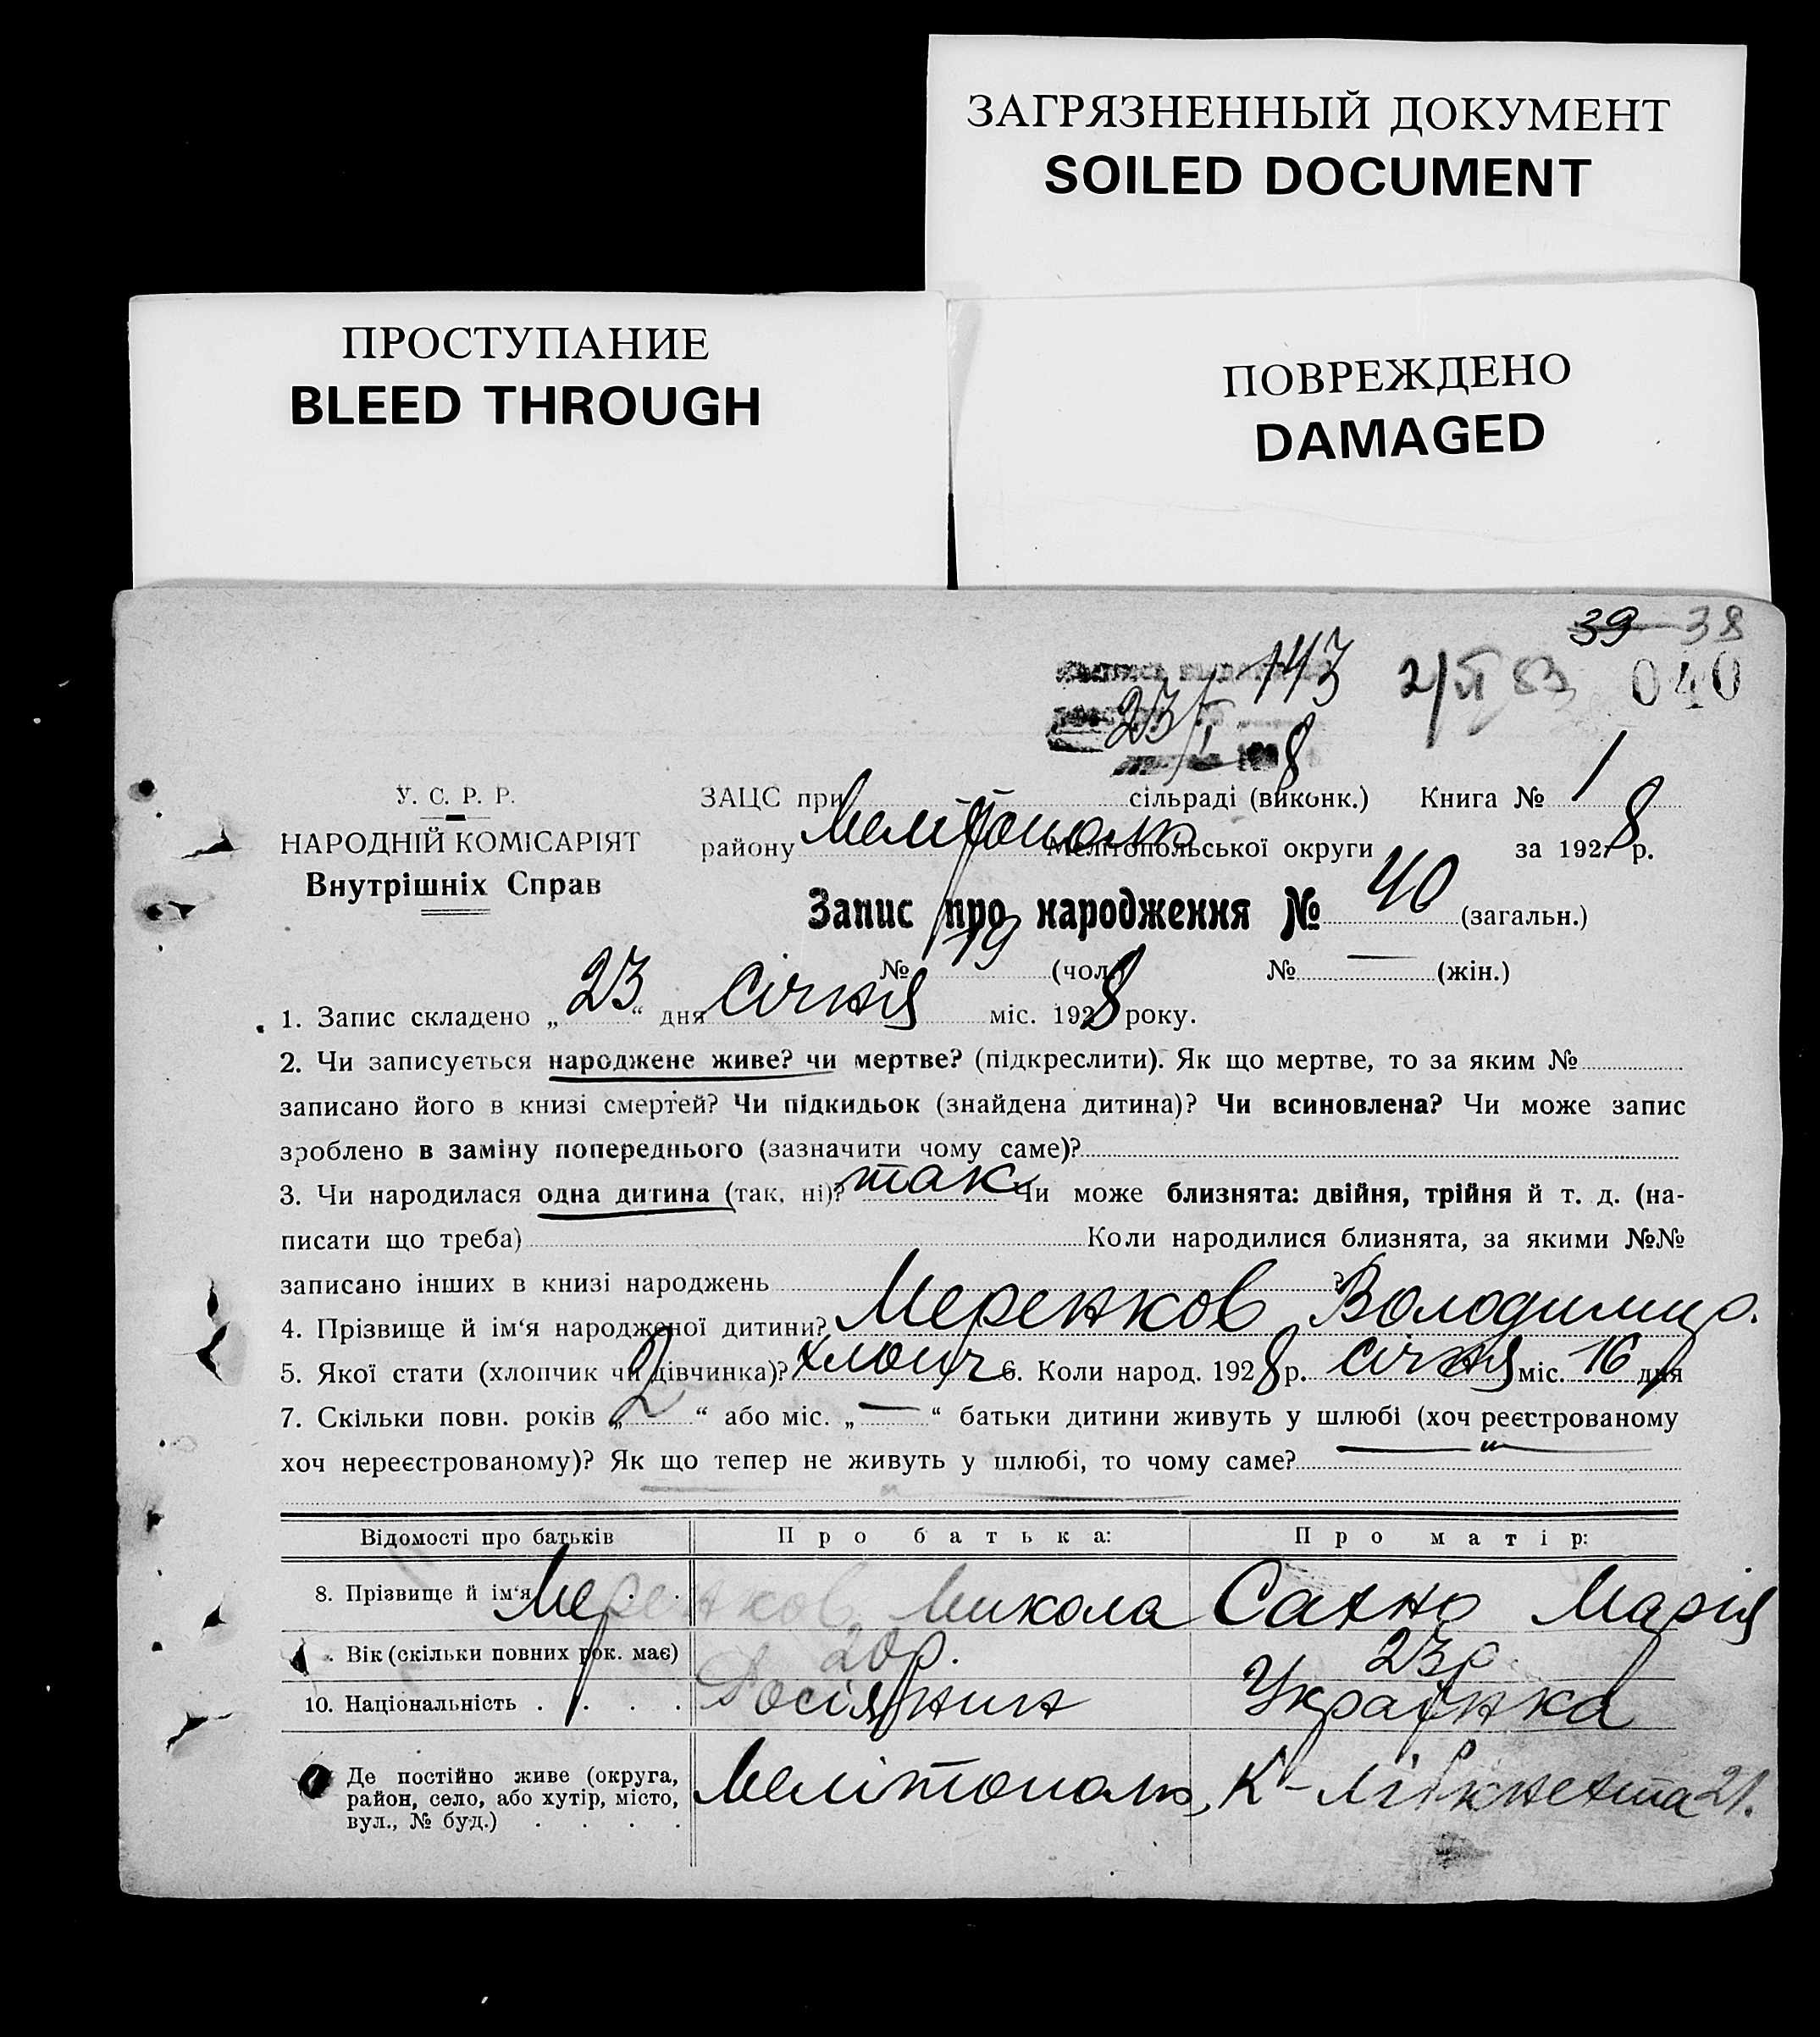 ЗАГРЯЗНЕННЫЙ ДОКУМЕНТ
SOILED DOCUMENT
ПРОСТУПАНИЕ
BLEED THROUGH
ПОВРЕЖДЕНО
DAMAGED
39 38
143 2/VI 53 040
23/I 8
У. С. Р. Р.
НАРОДНІЙ КОМІСАРІЯТ
Внутрішніх Справ
ЗАЦС при сільраді (виконк.) Книга № 1
району Мелітополь Мелітопольської округи за 1928 р.
Запис про народження № 40 (загальн.)
№ 19 (чол.) № — (жін.)
1. Запис складено „23“ дня січня міс. 1928 року.
2. Чи записується народжене живе? чи мертве? (підкреслити). Як що мертве, то за яким №
записано його в книзі смертей? Чи підкидьок (знайдена дитина)? Чи всиновлена? Чи може запис
зроблено в заміну попереднього (зазначити чому саме)?
3. Чи народилася одна дитина (так, ні)? так Чи може близнята: двійня, трійня й т. д. (на-
писати що треба) Коли народилися близнята, за якими №№
записано інших в книзі народжень ?
4. Прізвище й ім'я народженої дитини? Меренков Володимир.
5. Якої стати (хлопчик чи дівчинка)? хлопч 6. Коли народ. 1928 р. січня міс. 16 дня
7. Скільки повн. років „2“ або міс. „—“ батьки дитини живуть у шлюбі (хоч реєстрованому
хоч нереєстрованому)? Як що тепер не живуть у шлюбі, то чому саме?
Відомості про батьків Про батька: Про матір:
8. Прізвище й ім'я Меренков Микола Сахно Марія
Вік (скільки повних рок. має) 20р. 23р.
10. Національність . . . . Росіянин Українка
Де постійно живе (округа,
район, село, або хутір, місто,
вул., № буд.) . . . . Мелітополь, К-Лібкнехта 21.